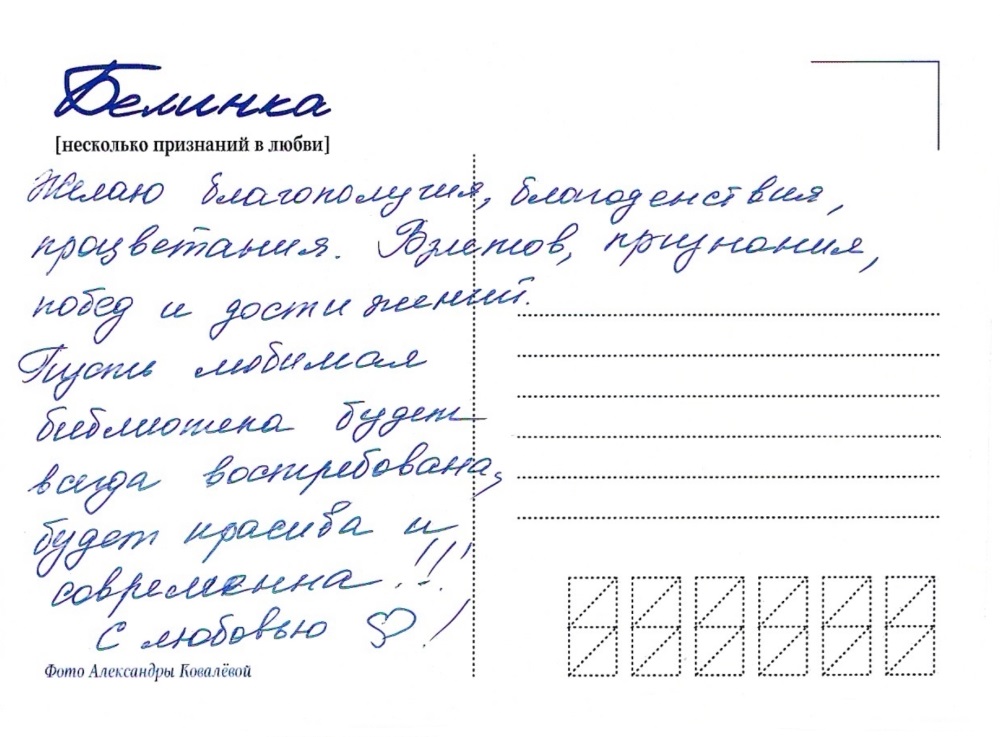 Белинка
[несколько признаний в любви]
Желаю благополучия, благоденствия,
процветания. Взлетов, признания,
побед и достижений.
Пусть любимая
библиотека будет
всегда востребована,
будет красива и
современна!!!
С любовью ♡!
Фото Александры Ковалёвой